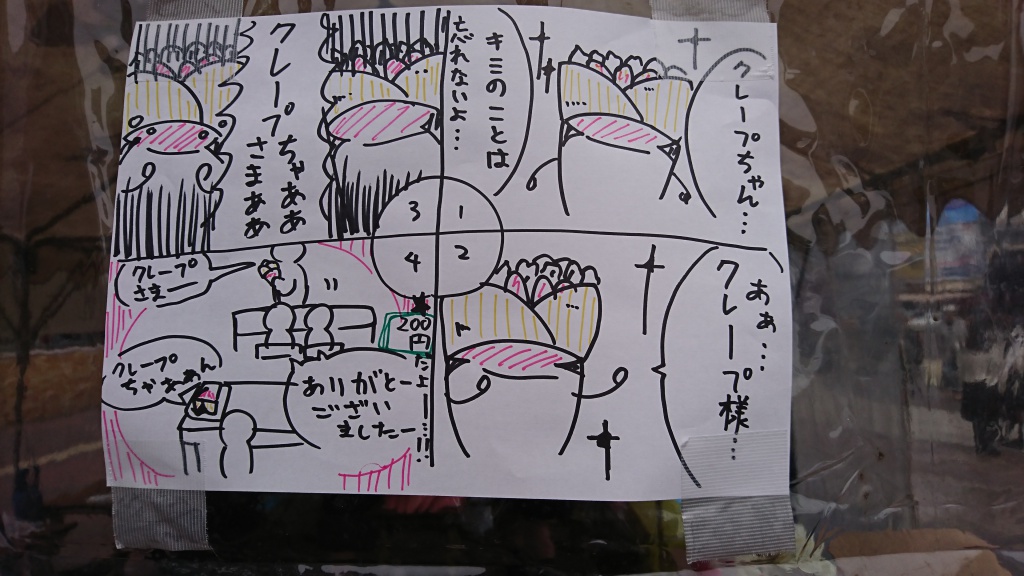 クレープちゃん…
キミのことは
忘れないよ…
1
あぁ…
クレープ様…
2
クレープちゃああ
さまぁぁぁ
3
4
クレープ
さまー
クレープ
ちゃああん
ありがとー
ござい
ましたー
★
200
円
だよー…!!